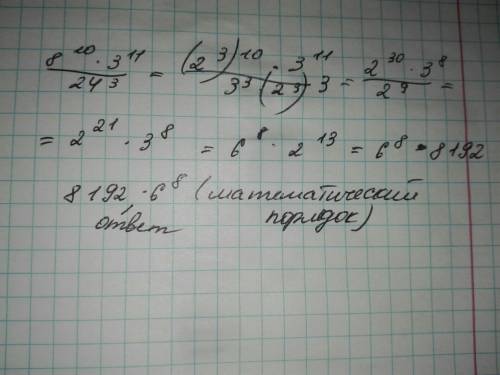 8^10 · 3^11 / 24^3 = (2^3)^10 · 3^11 / 3^3 (2^3)^3 = 2^30 · 3^8 / 2^9 =
= 2^21 · 3^8 = 6^8 · 2^13 = 6^8 · 8192
8192 · 6^8 (математический
ответ порядок)